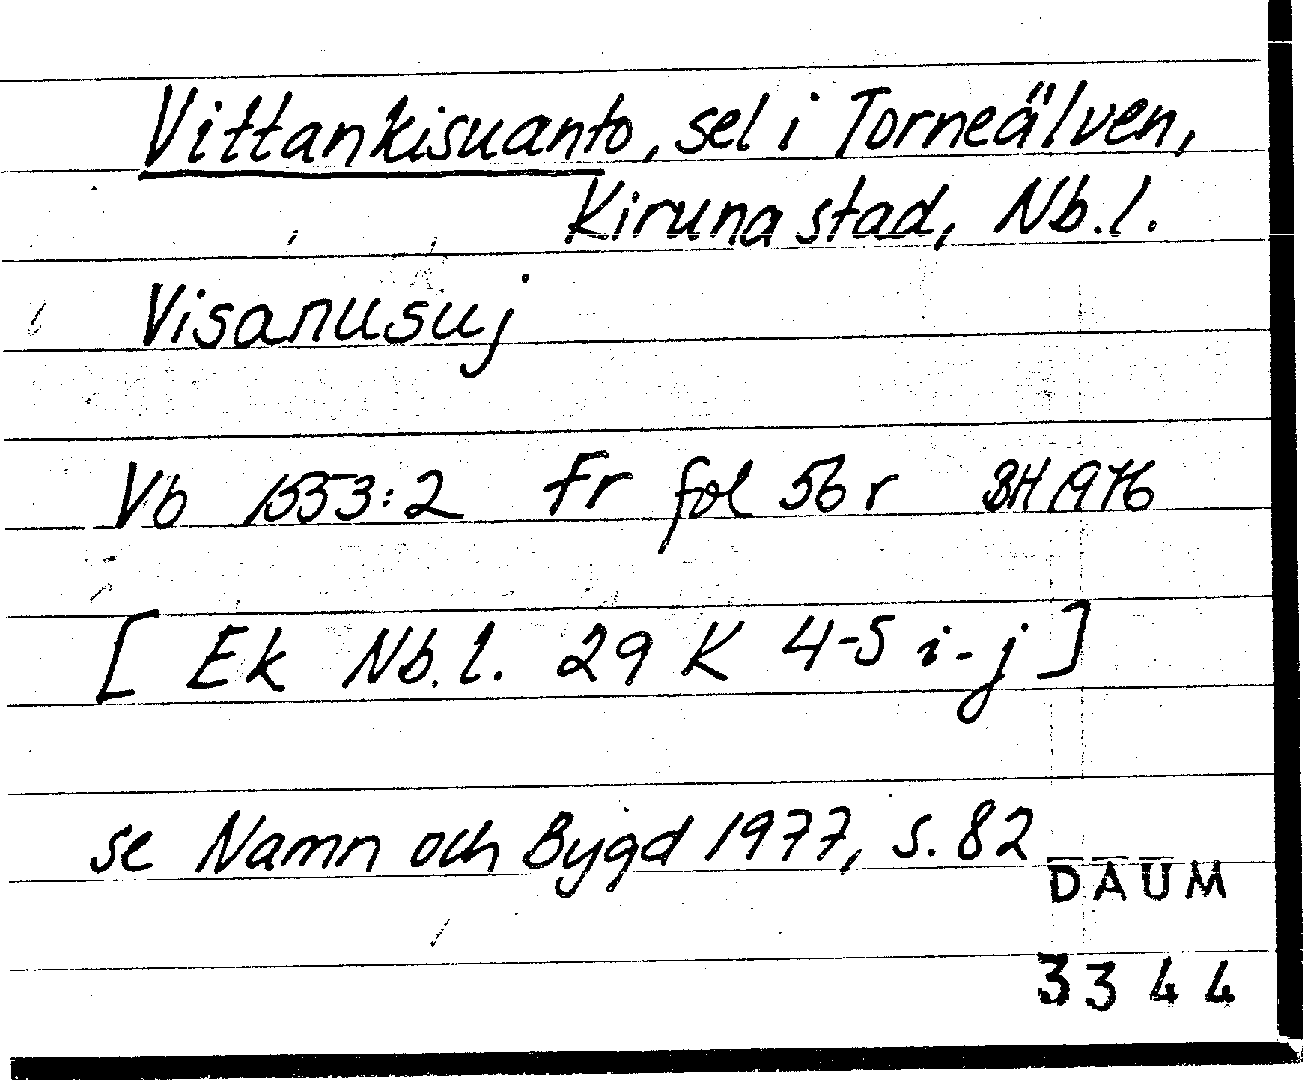 Vittankisuanto, sel i Torneälven,
Kiruna stad, Nb.l.
Visanusuj
Vb 1553:2 Fr fol 56 r BH 1976
[ Ek Nb.l. 29 K 4-5 i-j ]
se Namn och Bygd 1977, s. 82
DAUM
3344